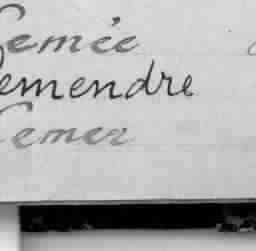 Semée
emendre
Semer